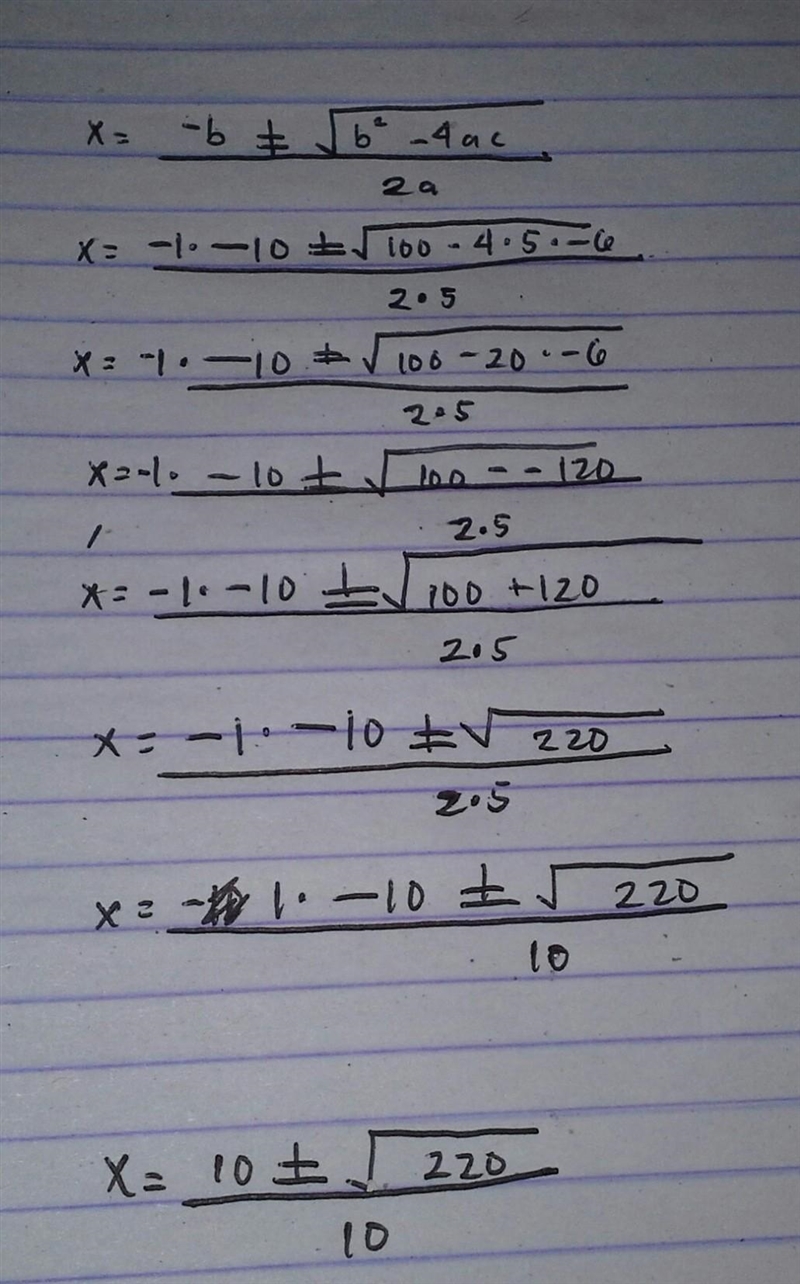 x = -b ± √b² - 4ac
2a
x = -1· -10 ± √100 - 4·5·-6
2·5
x = -1· -10 ± √100 - 20·-6
2·5
x = -1· -10 ± √100 - -120
2·5
x = -1· -10 ± √100 + 120
2·5
x = -1· -10 ± √220
2·5
x = - 1· -10 ± √220
10
x = 10 ± √220
10